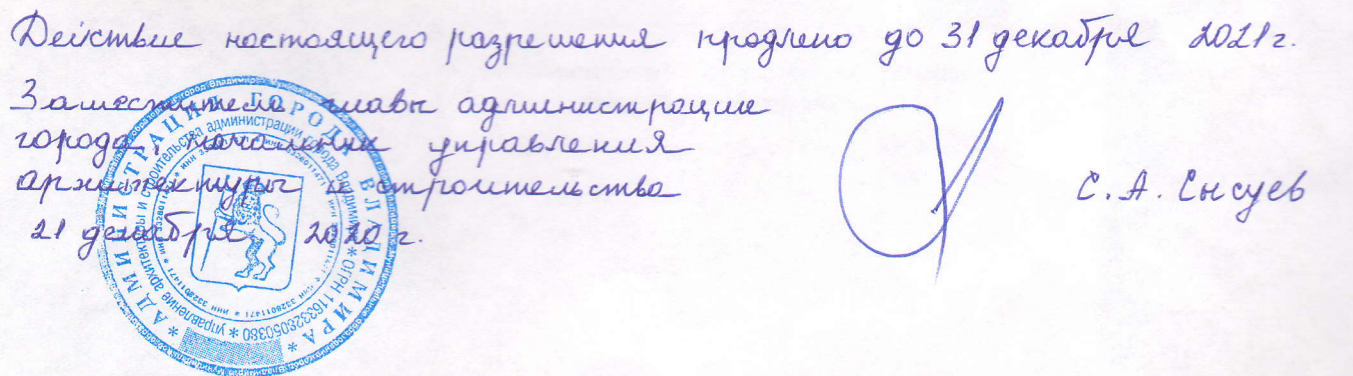 Действие настоящего разрешения продлено до 31 декабря 2021г.
Заместитель главы администрации
города, начальник управления
архитектуры и строительства
С. А. Сысуев
21 декабря 2020 г.
* АДМИНИСТРАЦИЯ ГОРОДА ВЛАДИМИРА *
управление архитектуры и строительства администрации города Владимира * ОГРН 1163328050380 *
* ИНН 3328011471 * ИНН 3328011471 *